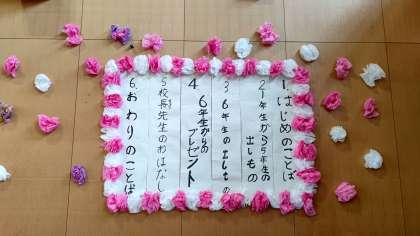 1.はじめのことば
2.1年生から5年生の
出しもの
3.6年生の出しもの
4.6年生からの
プレゼント
5.校長先生のおはなし
6.おわりのことば